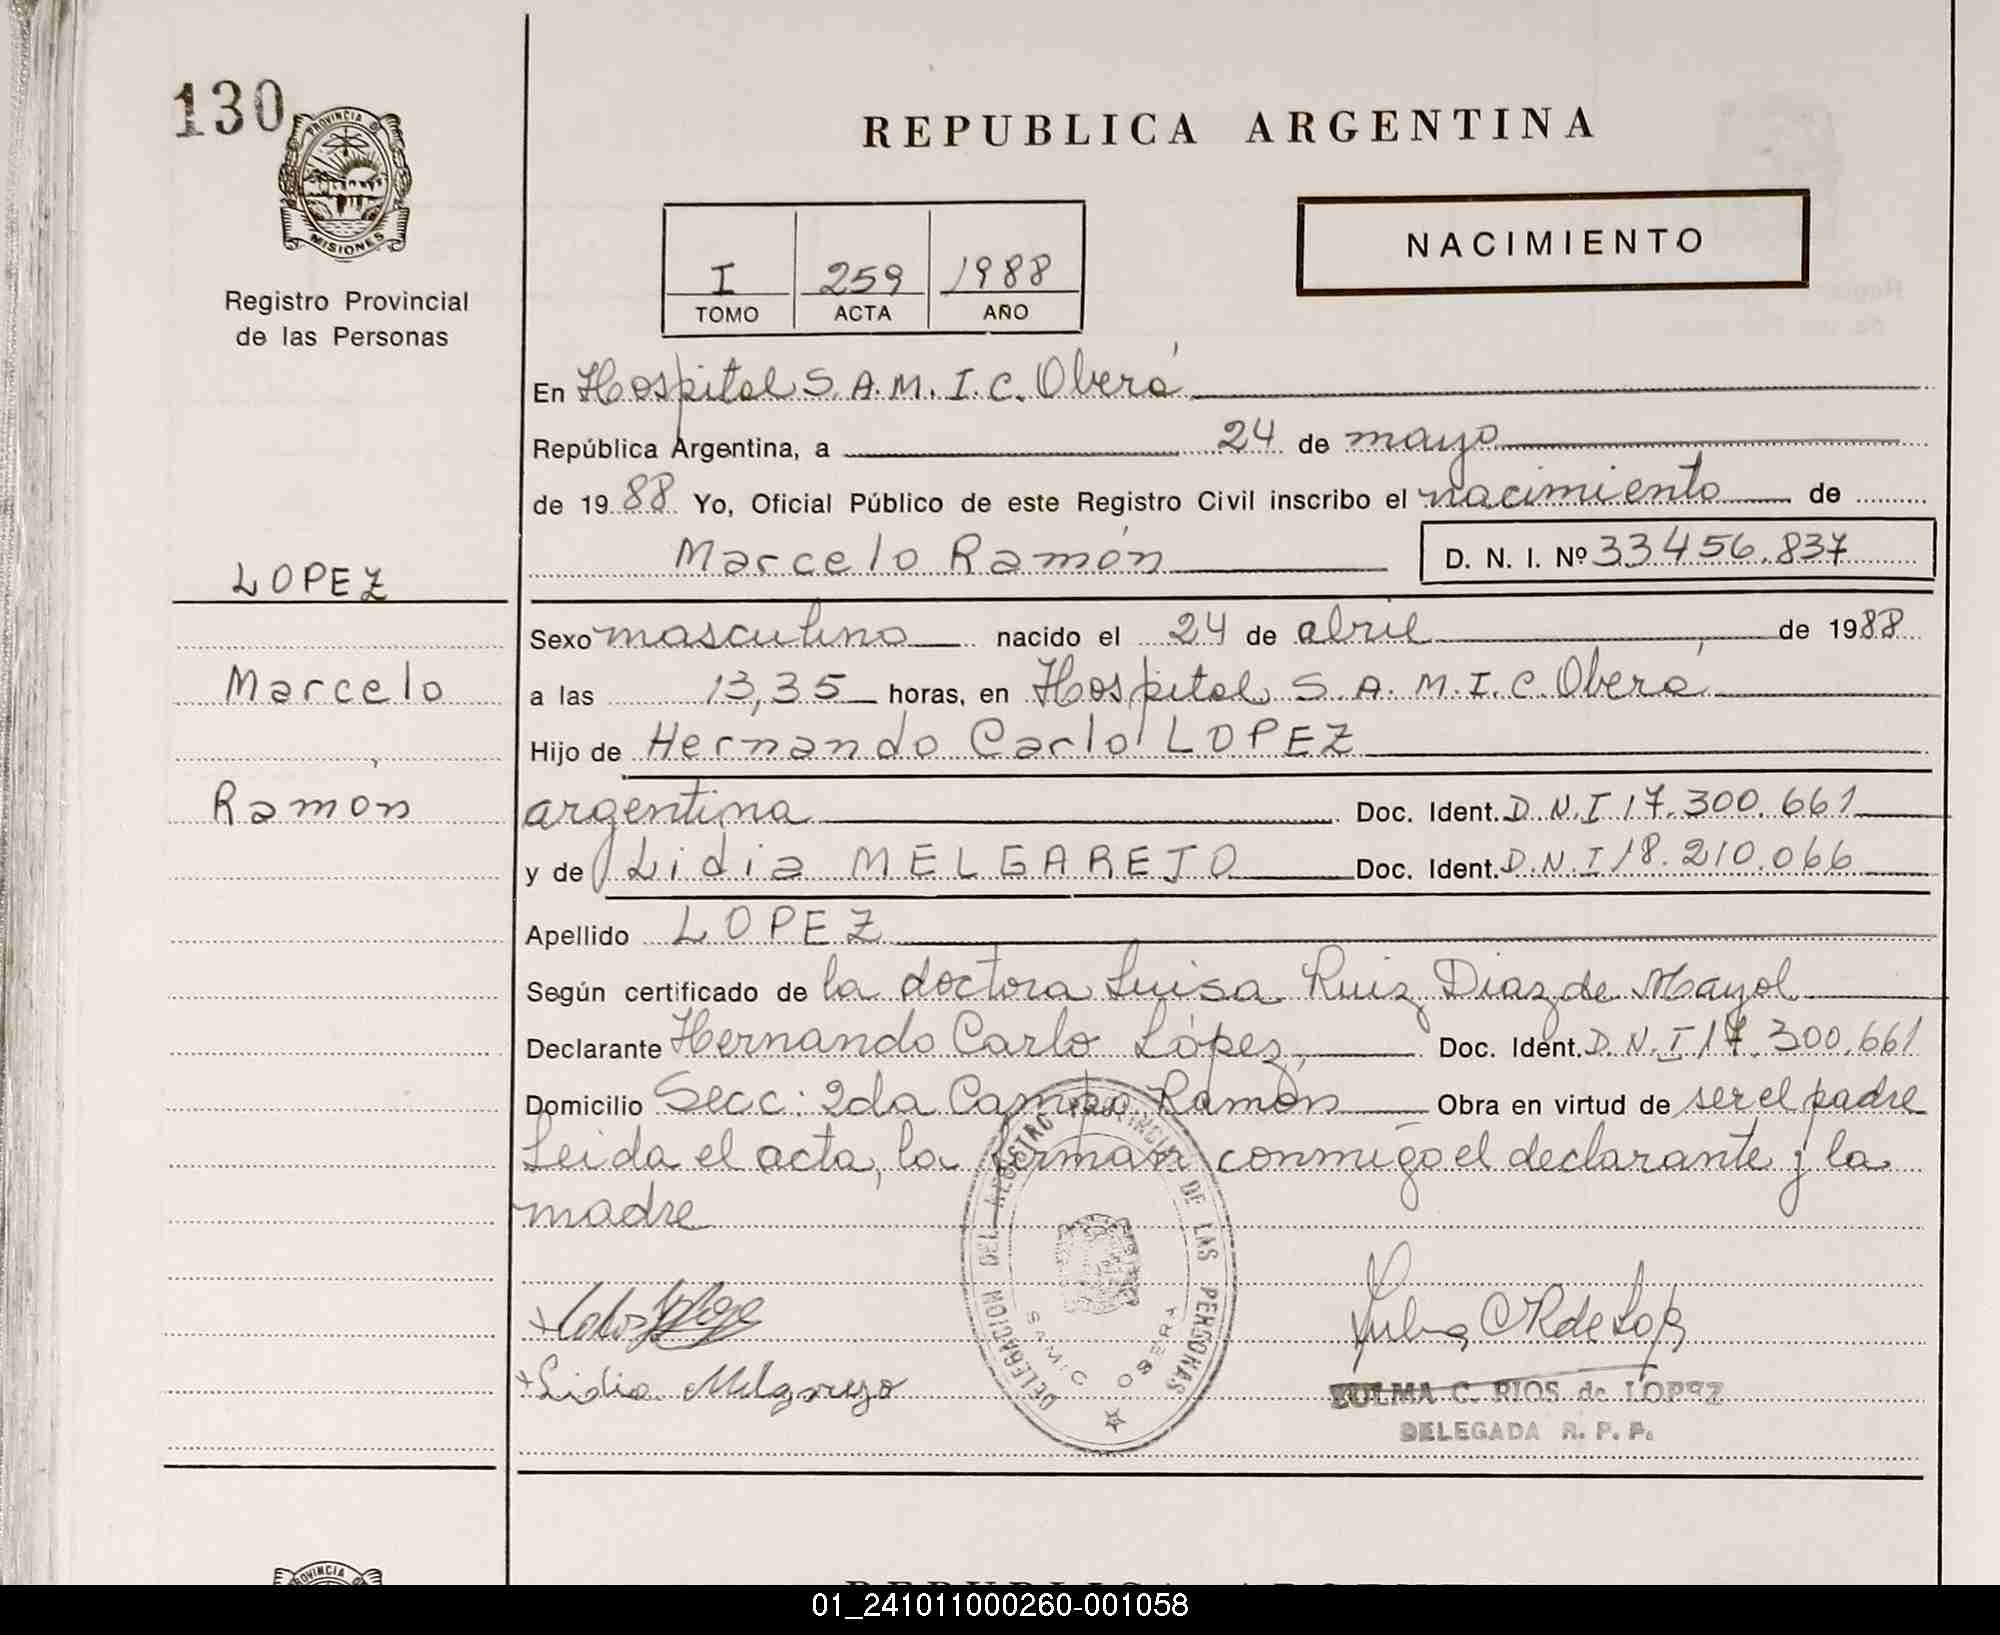 130
PROVINCIA DE
MISIONES
Registro Provincial
de las Personas
REPUBLICA ARGENTINA
NACIMIENTO
I 259 1988
TOMO ACTA AÑO
En Hospital S.A.M.I.C. Oberá
República Argentina, a 24 de mayo
de 1988 Yo, Oficial Público de este Registro Civil inscribo el nacimiento de
Marcelo Ramón D. N. I. Nº 33456.837
LOPEZ
Marcelo
Ramón
Sexo masculino nacido el 24 de abril de 1988
a las 13,35 horas, en Hospital S.A.M.I.C. Oberá
Hijo de Hernando Carlo LOPEZ
argentina Doc. Ident. D.N.I 17.300.661
y de Lidia MELGAREJO Doc. Ident. D.N.I 18.210.066
Apellido LOPEZ
Según certificado de la doctora Luisa Ruiz Diaz de Mayol
Declarante Hernando Carlo López, Doc. Ident. D.N.I 17.300.661
Domicilio Secc: 2da Campo Ramón Obra en virtud de ser el padre
Leida el acta, la firman conmigo el declarante y la
madre
DELEGACION DEL REGISTRO PROVINCIAL DE LAS PERSONAS
SAMIC OBERA
Lidia Melgarejo
ZULMA C. RIOS de LOPEZ
DELEGADA R. P. P.
PROVINCIA
01_241011000260-001058